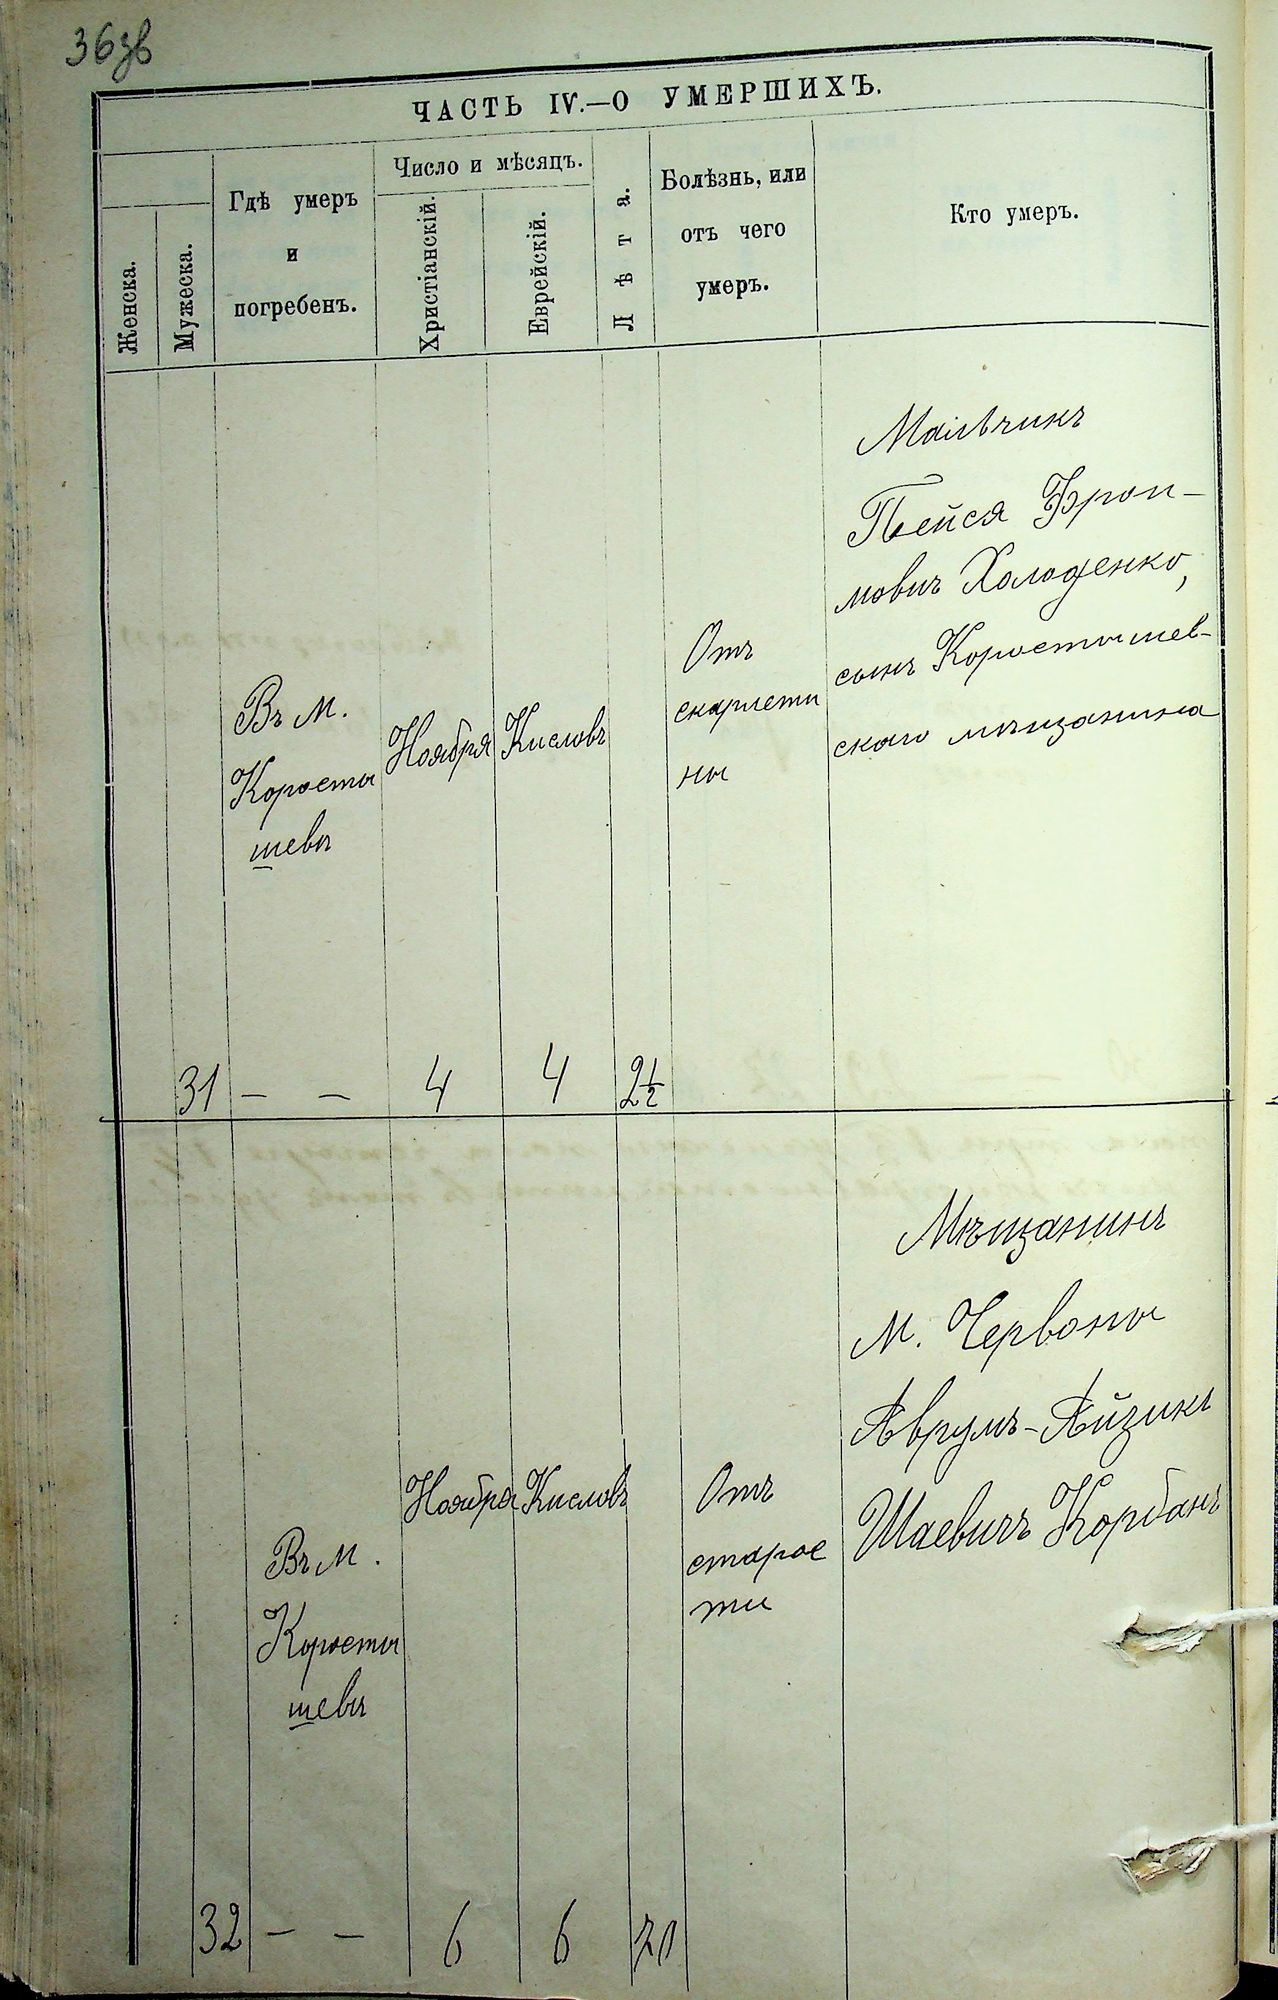 36зв
ЧАСТЬ IV.—О УМЕРШИХЪ.
Женска.
Мужеска.
Гдѣ умеръ
и
погребенъ.
Число и мѣсяцъ.
Христіанскій.
Еврейскій.
Лѣта.
Болѣзнь, или
отъ чего
умеръ.
Кто умеръ.
31
Въ м.
Коросты
шевѣ
— —
Ноября
4
Кислевъ
4
2½
Отъ
скарлети
ны
Мальчикъ
Пейся Фроп-
мовичъ Холоденко,
сынъ Коростышев-
скаго мѣщанина
32
Въ м.
Коросты
шевѣ
— —
Ноября
6
Кислевъ
6
Отъ
старос
ти
Мѣщанинъ
м. Червоны
Аврумъ-Айзикъ
Шаевичъ Корбанъ